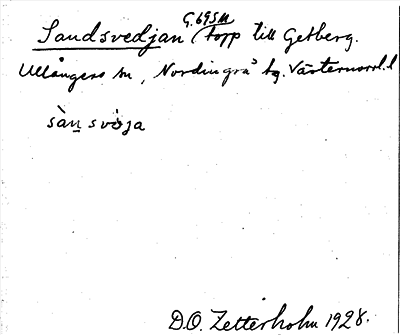 G.695M
Sandsvedjan (topp till Getberg.
Ullångers sn, Nordingrå tg. Västernorrl. l
sàn̲ svö̀ja
D.O. Zetterholm 1928.